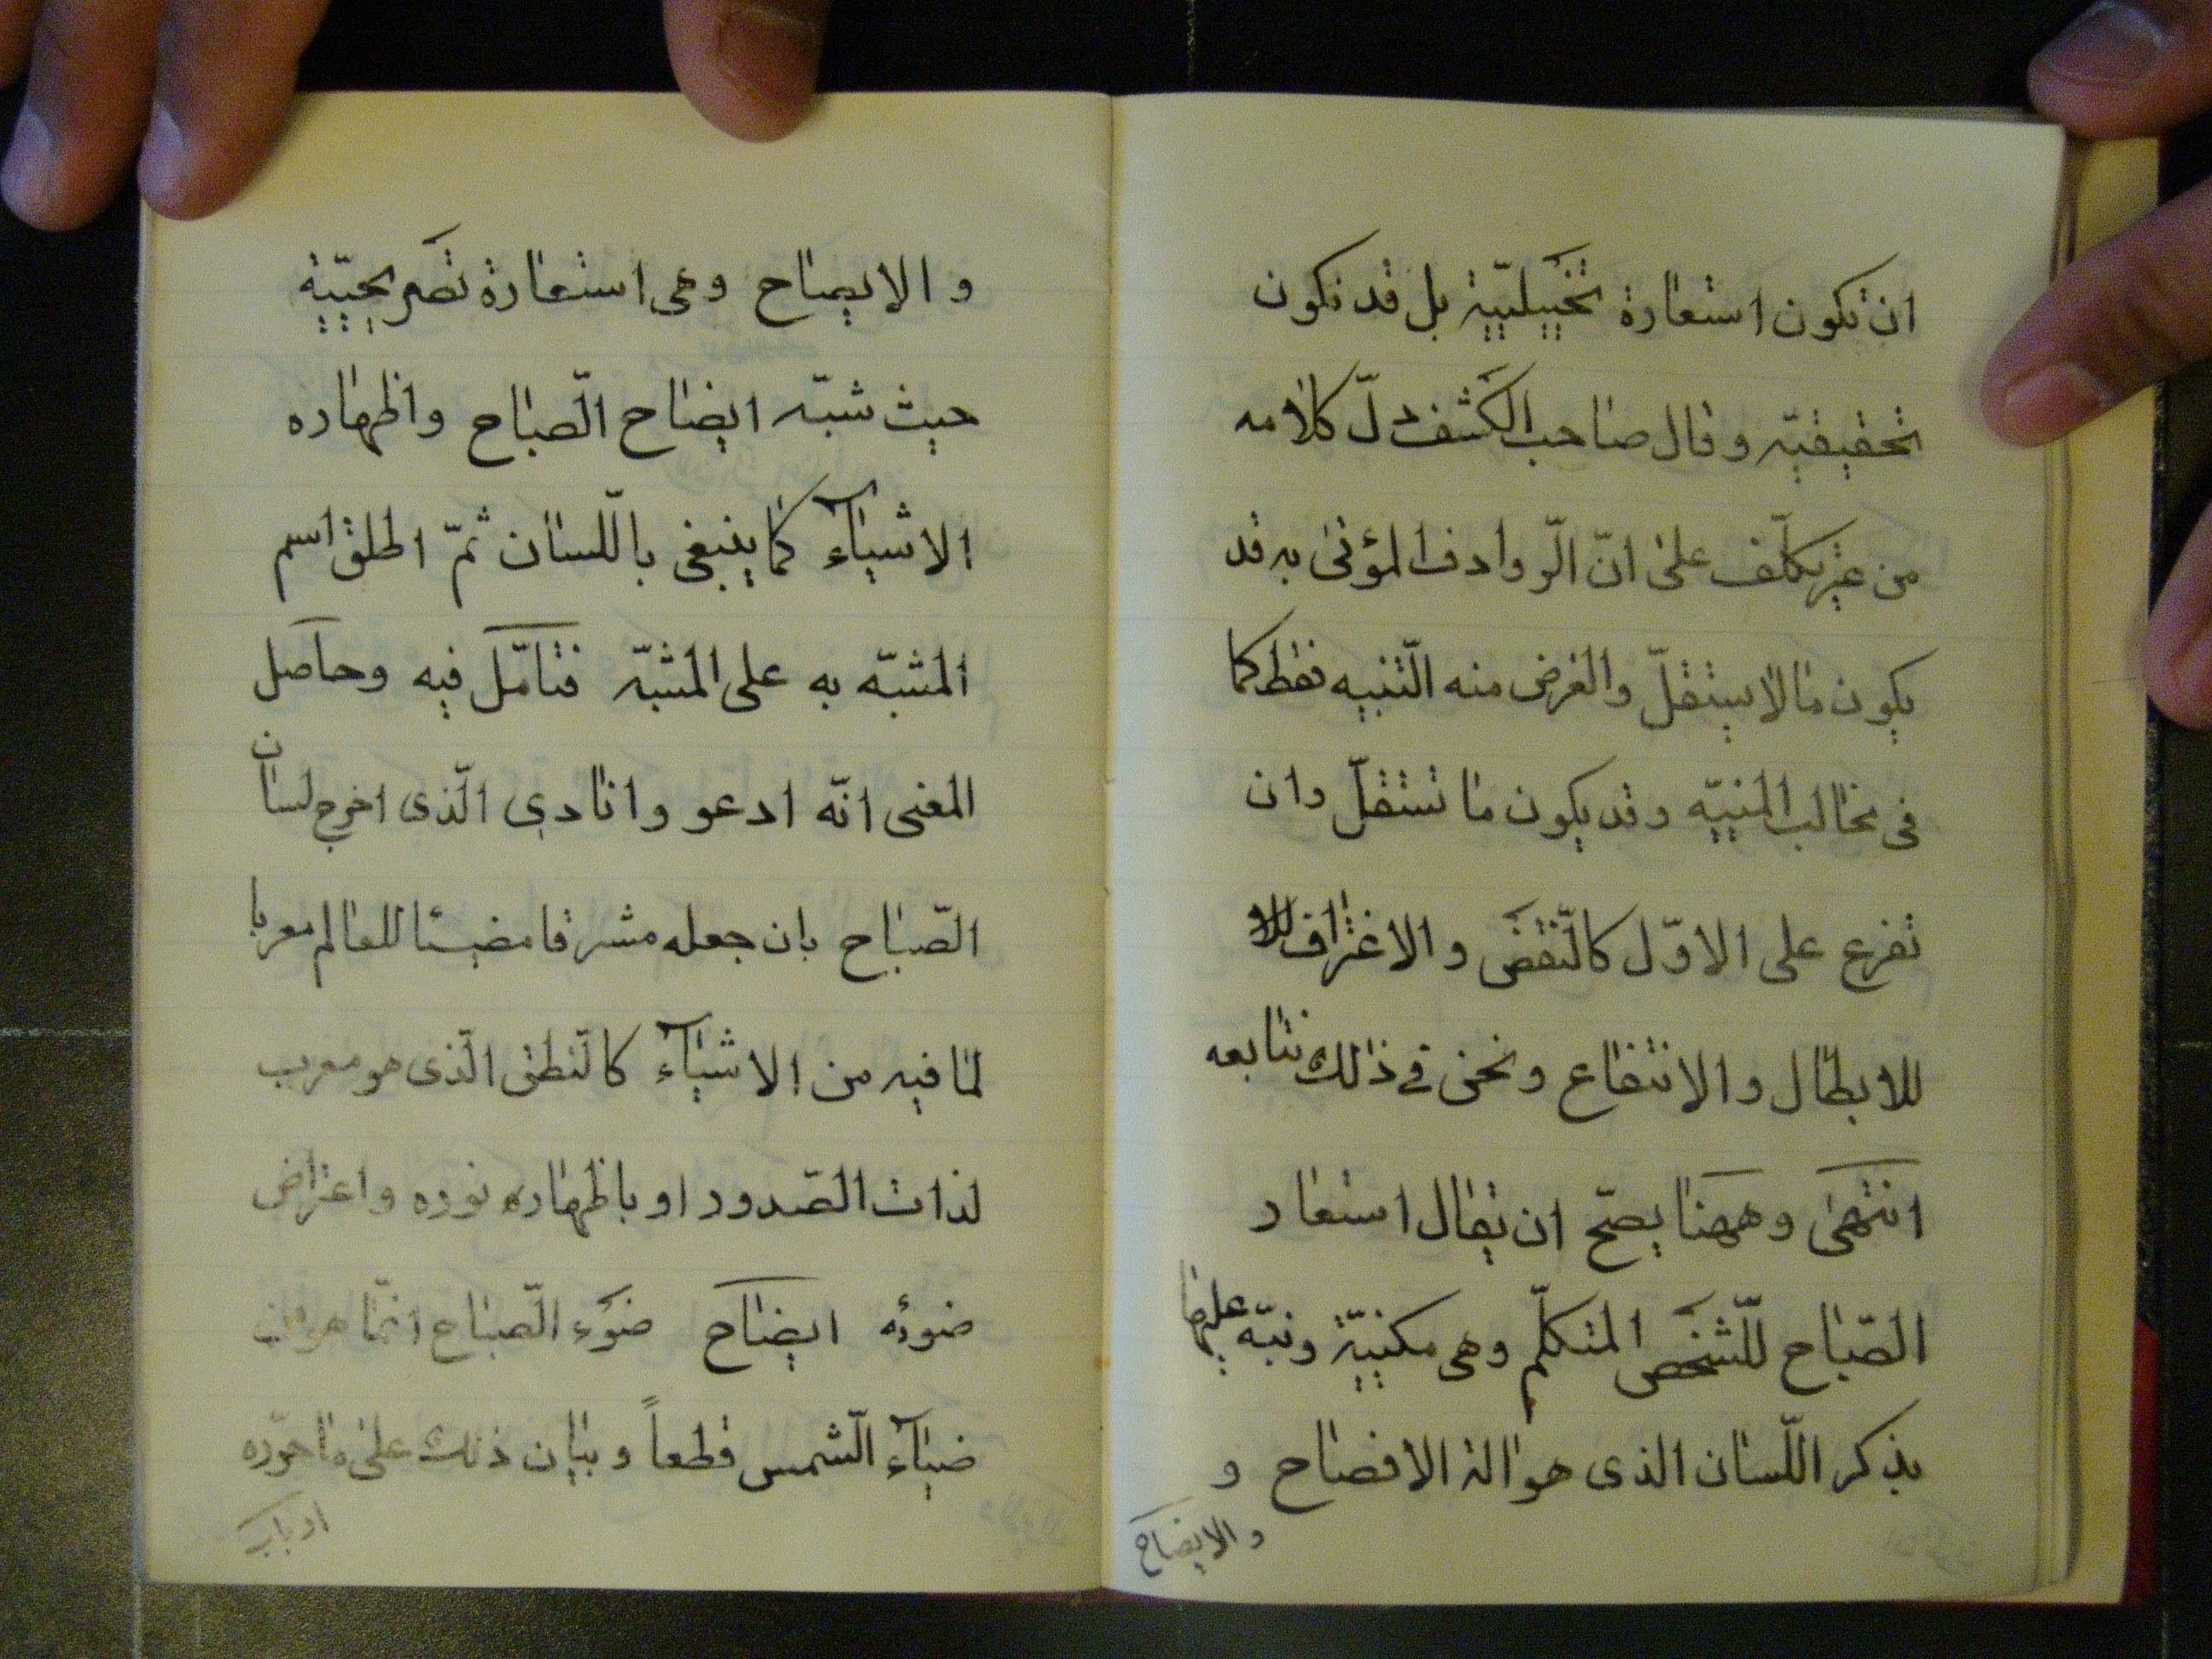 ان تكون استعارة تخييليّة بل قد تكون
تحقيقيّه وقال صاحب الكشف دلّ كلامه
من غير تكلّف علىٰ انّ الرّوادف المؤتىٰ به قد
يكون ما لا يستقلّ والغرض منه التّنبيه فقط كما
فى مخالب المنيّه وقد يكون ما تستقلّ وان
تفرع على الاوّل كالنّقض و الاغتراف
للابطال و الانتفاع ونحن فى ذلك نتابعه
انتهىٰ وههنا يصحّ ان يقال استعار
الصّباح للّشخص المتكلّم وهى مكنيّة ونبّه عليها
بذكر اللّسان الذى هو الة الافصاح و
والايضاح
و الايضاح وهى استعارة تصريحيّة
حيث شبّه ايضاح الّصباح واظهاره
الاشيآء كما ينبغى باللّسان ثمّ اطلق اسم
المشبّه به على المشبّه فتامّل فيه وحاصل
المعنى انّه ادعو وانادى الّذى اخرج لسان
الصّباح بان جعله مشرقا مضيئا للعالم معربا
لما فيه من الاشيآء كالنّطق الّذى هو معرب
لذات الصّدور او باظهاره نوره واعتراض
ضوئه ايضاح ضوء الصّباح انمّا هو من
ضيآء الّشمس قطعاً وبيان ذلك علىٰ ما حرّره
ارباب